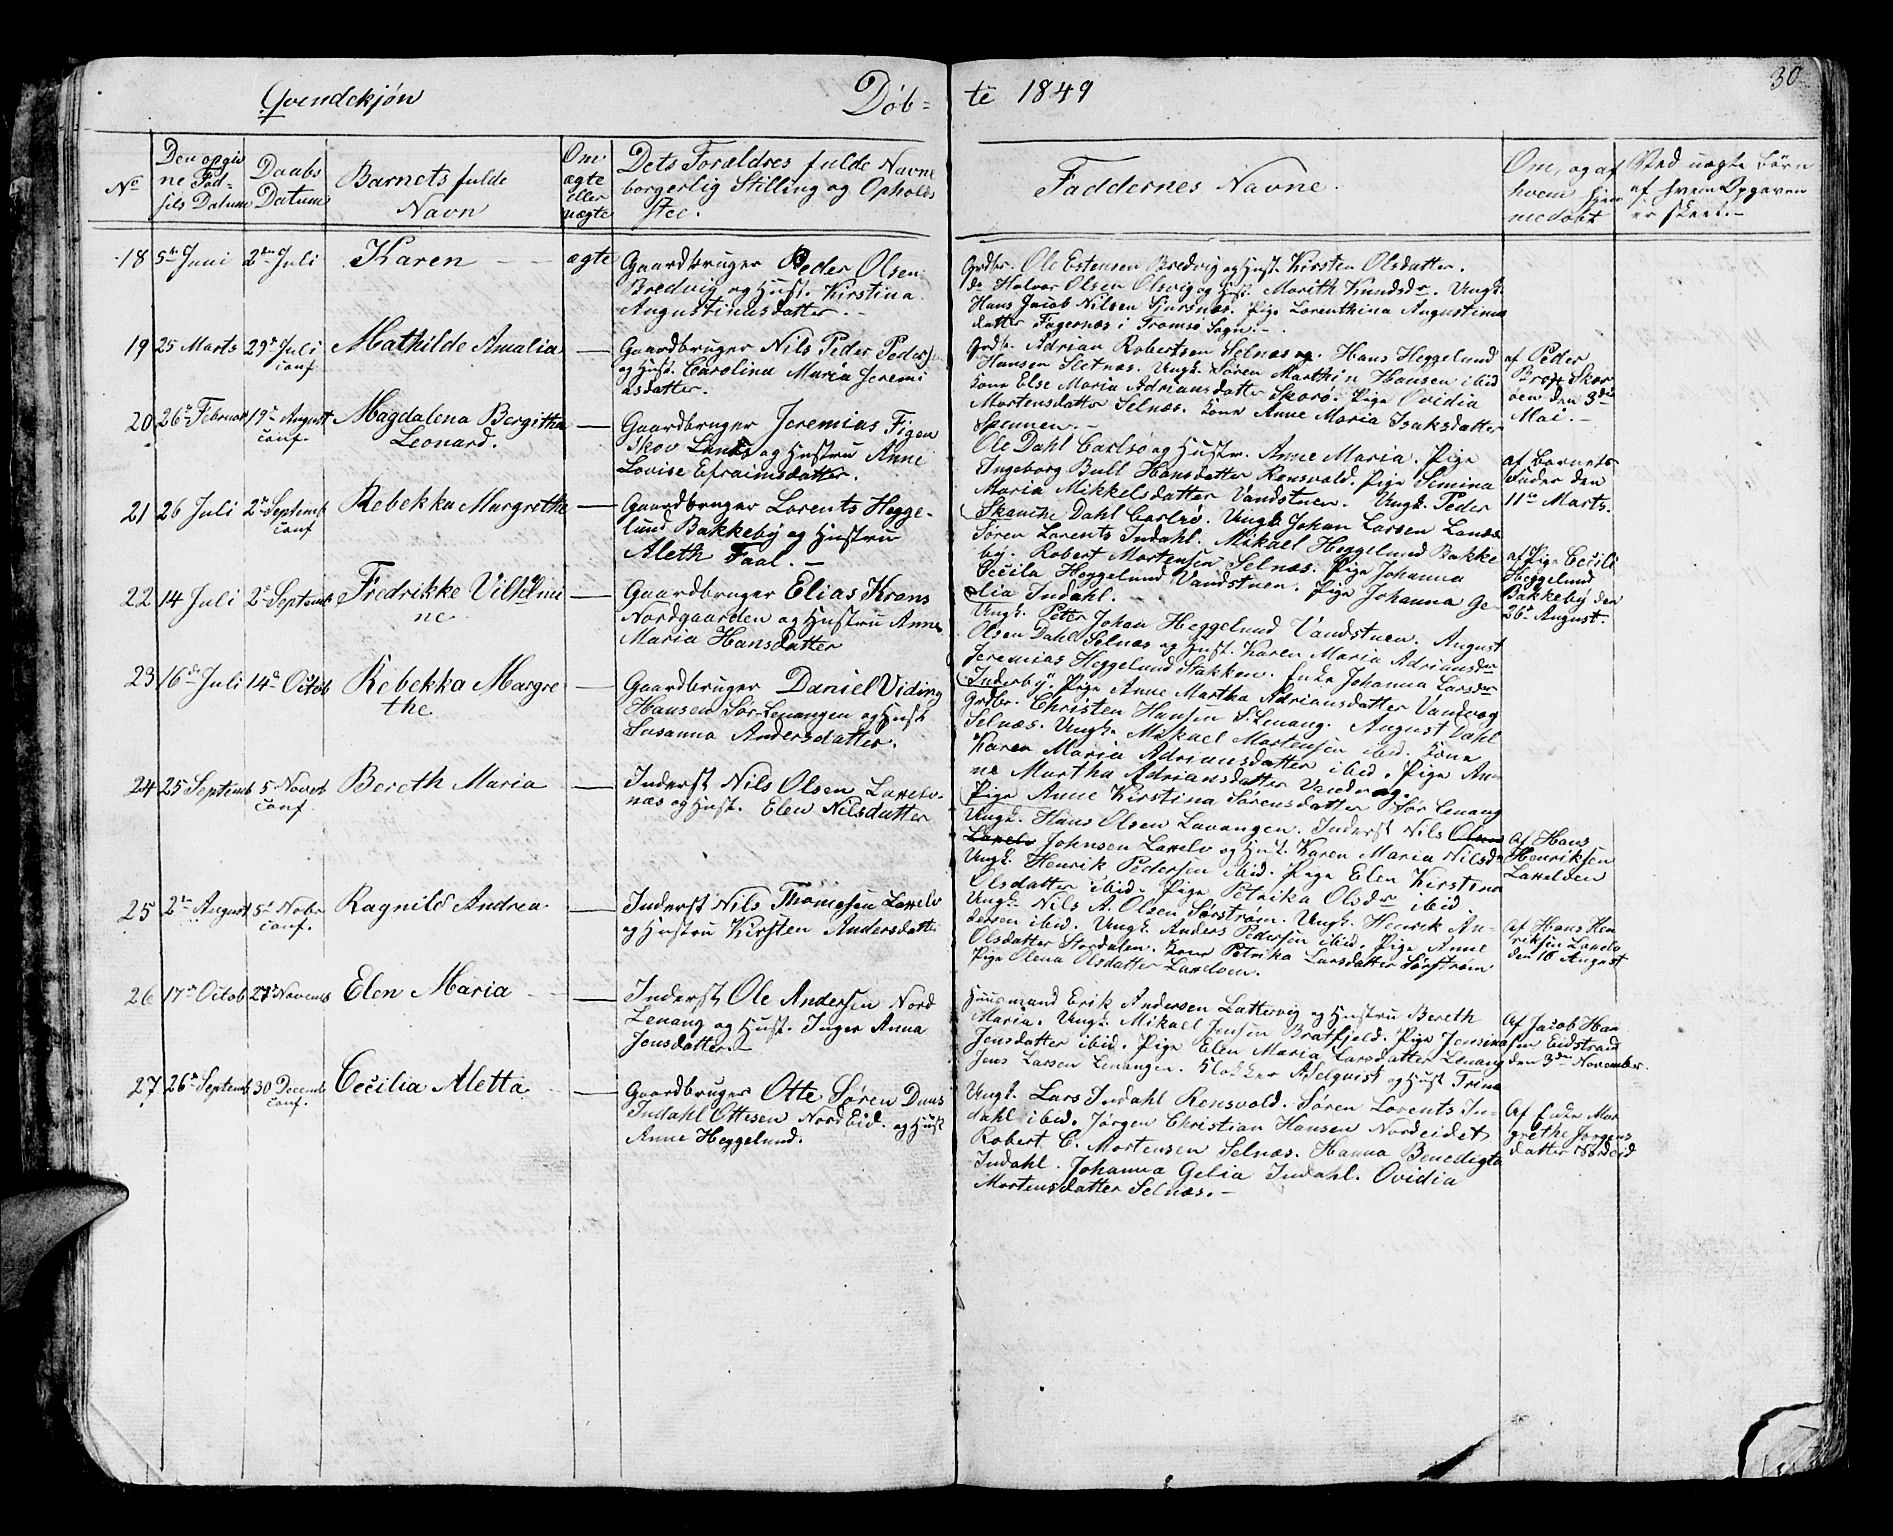 Qvendekjøn
Døb-
te 1849
30
No
Den opgiv
ne Fød-
sels Datum
Daabs
Datum
Barnets fulde
Navn
Om
ægte
eller
uægte
Dets Forældres fulde Navne
borgerlig Stilling og Opholds
sted.
Faddernes Navne.
Om, og af
hvem hjem
medøbt
Ved uægte Børn
af hvem Opgaven
er skeet.-
18 5te Juni 2den Juli Karen ægte
Gaardbruger Peder Olsen
Bredvig og Hust. Kirstina
Augustinusdatter.-
Grdbr. Ole Estensen Bredvig og Hust. Kirsten Olsdatter.
do Halvor Olsen Olsvig og Hust. Marith Knudsdr. Ungk.
Hans Jacob Nilsen Sjursnæs. Pige Lorenthina Augustinus
datter Fagernæs i Tromsø Sogn.-
19 25 Marts 29de Juli Mathilde Amalia
conf
Gaardbruger Nils Peder Peders
og Hust. Carolina Maria Jeremi
asdatter.
Grdb. Adrian Robertsen Selnæs og. Hans Heggelund
Hansen Sletnæs. Ungk. Søren Marthin Hansen ibid
Kone Else Maria Adriansdatter Skorø. Pige Ovidia
Mortensdatter Selnæs. Kone Anne Maria Isaksdatter
Spennen.-
af Peder
Skor
øen den 3die
Mai.-
20 26de Februar 19de August Magdalena Bergitha
conf. Leonard.
Gaardbruger Jeremias Figen
Skov og Hustru Anne
Lovise Efraimsdatter.
Ole Dahl Carlsø og Hustru. Anne Maria. Pige
Ingeborg Bull Hansdatter Rensvold. Pige Semina
Maria Mikkelsdatter Vandstuen. Ungk. Peder
Skancke Dahl Carlsø.
af Barnets
Fader den
11te Marts.
21 26 Juli 2den Septemb Rebekka Margretha
conf
Gaardbruger Lorents Hegge-
lund Bakkeby og Hustru
Aleth Faal.-
Ungk Johan Larsen Lands
Søren Lorents Indahl. Mikael Heggelund Bakke
by. Robert Mortensen Selnæs. Pige Johanna
Cecilia Heggelund Vandstuen. Pige Johanna Ge-
lia Indahl.
af Pige Cecili
Heggelund
Bakkeby den
26de August.
22 14 Juli 2de Septemb Fredrikke Vilhelmi
ne
Gaardbruger Elias Krans
Nordgaarden og Hustru Anne
Maria Hansdatter
Ungk. Petter Johan Heggelund Vandstuen. August
Olsen Dahl Selnæs og Hust. Karen Maria Adriansdr
Jeremias Heggelund Stakken. Enke Johanna Larsdr
Inderby. Pige Anne Martha Adriansdatter Vandvog
23 16de Juli 14de Octob Rebekka Margre
the
Gaardbruger Daniel Viding
Hansen Sør-Lenangen og Hust
Susanna Andersdatter.
Grdbr. Christen Hansen S.Lenang. August Dahl
Selnæs. Ungk. Mikael Mortensen ibid. Kone
Karen Maria Adriansdatter ibid. Pige An-
ne Martha Adriansdatter Vandvog.
Pige Anne Kirstina Sørensdatter Sør Lenang
24 25 Septemb 5 Novemb Bereth Maria
conf
Inderst Nils Olsen Laxelv-
næs og Hust. Elen Nilsdatter
Ungk. Hans Olsen Lavangen. Inderst Nils Olsen
Laxelv Johnsen Laxelv og Hust. Karen Maria Nilsdr
Ungk. Henrik Pedersen ibid. Pige Elen Kirstina
Olsdatter ibid. Pige Petrika Olsdr ibid.
Af Hans
Henriksen
Laxelven
25 2den August 5te Nobr. Ragnild Andrea
conf.
Inderst Nils Thomesen Laxelv
og Hustru Kirsten Andersdatte
Ungk. Nils A. Olsen Sørstrøm. Ungk. Henrik An-
dersen ibid. Ungk. Anders Pedersen ibid. Pige Anne
Olsdatter Stordalen. Kone Petrika Larsdatter Sørstrøm
Pige Olena Olsdatter Laxelven.
af Hans Hen
riksen Laxelv
den 16 August
26 17de Octob Novemb Elen Maria
Inderst Ole Andersen Nord
Lenang og Hust. Inger Anna
Jensdatter.-
Huusmand Erik Andersen Lattervig og Hustru Bereth
Maria. Ungk. Mikael Jensen Bratfjeld. Pige Jensina
Jensdatter ibid. Pige Elen Maria Larsdatter Lenang
Jens Larsen Lenangen. Klokker Adelqvist og Hust Trina
Af Jacob Han
sen Eidstrand
den 3die November.
27 26de Septemb 30 Decemb Cecilia Aletta
conf.
Gaardbruger Otte Søren Duus
Indahl Ottesen NordEid. og Hust
Anne Heggelund.
Ungk. Lars Indahl Rensvold. Søren Lorents In-
dahl ibid. Jørgen Christian Hansen Nordeidet
Robert C. Mortensen Selnæs. Hanna Benedigta
Indahl. Johanna Gelia Indahl. Ovidia
Mortensdatter Selnæs.-
Af Enke Mar
grethe Jørgens
datter Nordeid